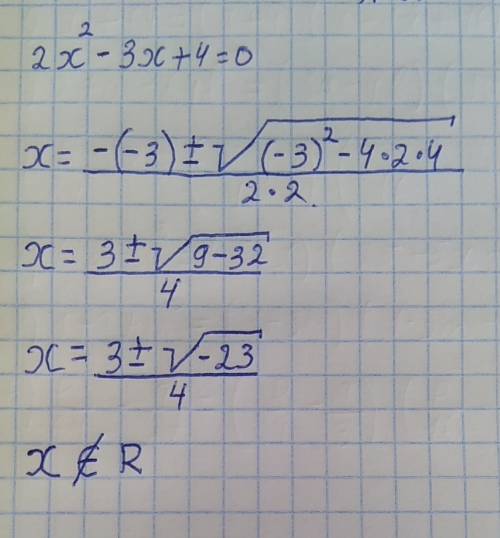 2x² - 3x + 4 = 0
x = (-(-3) ± √((-3)² - 4·2·4)) / (2·2)
x = (3 ± √(9-32)) / 4
x = (3 ± √(-23)) / 4
x ∉ R